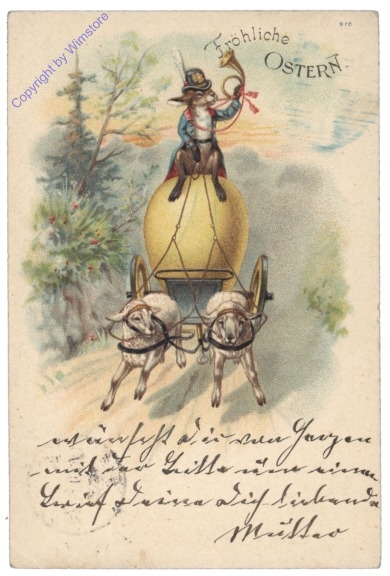 Copyright by Wimstore
978
Fröhliche
OSTERN.
wünscht dir von Herzen
mit der Bitte um einen
Brief deine dich liebende
Mutter